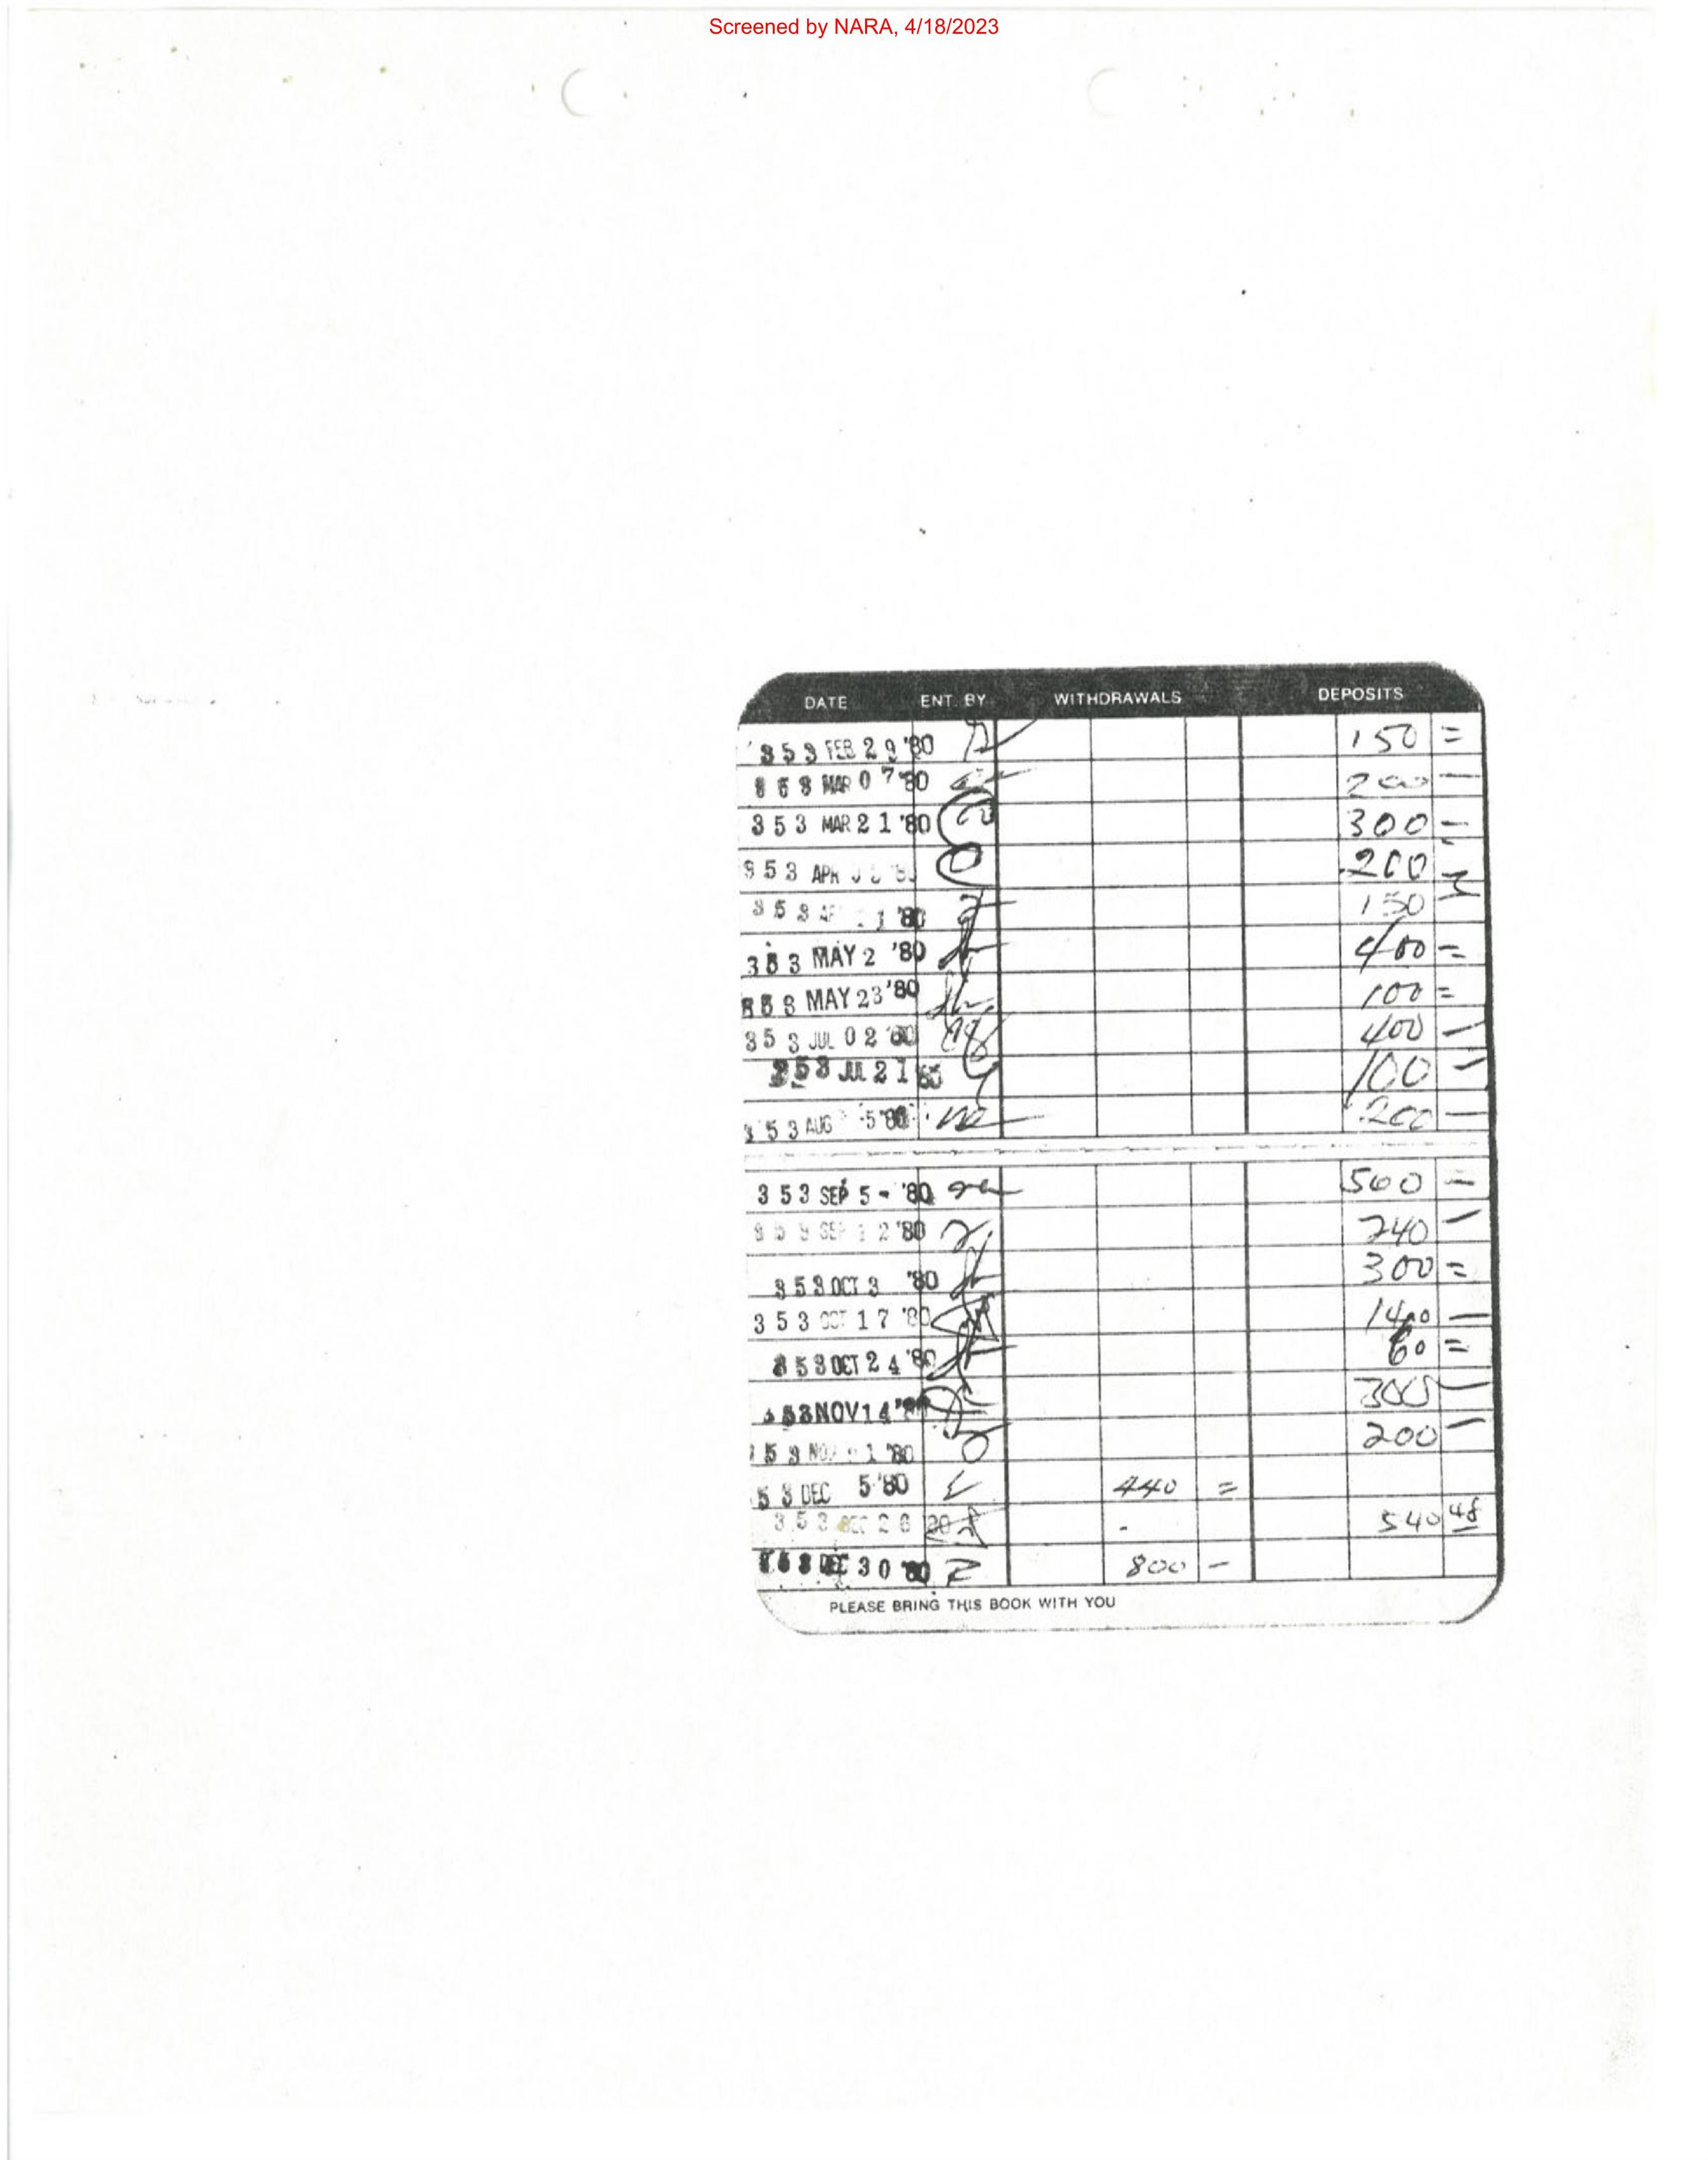 Screened by NARA, 4/18/2023
DATE ENT. BY WITHDRAWALS DEPOSITS
353 FEB 29 '80 150 =
353 MAR 07 '80 200 —
353 MAR 21 '80 300 =
353 APR 200
353 1 '80 150 —
353 MAY 2 '80 400 =
353 MAY 23 '80 100 =
353 JUL 02 '80 400 —
353 JUL 21 100 —
353 AUG 5 '80 200 —
353 SEP 5 - '80 500 =
353 SEP 12 '80 240 —
353 OCT 3 '80 300 =
353 OCT 17 '80 —
353 OCT 24 '80 60 =
53 NOV 14 300 —
353 NOV 1 '80 200 —
53 DEC 5 '80 440 =
353 DEC 26 80 540 48
353 DEC 30 '80 800 —
PLEASE BRING THIS BOOK WITH YOU